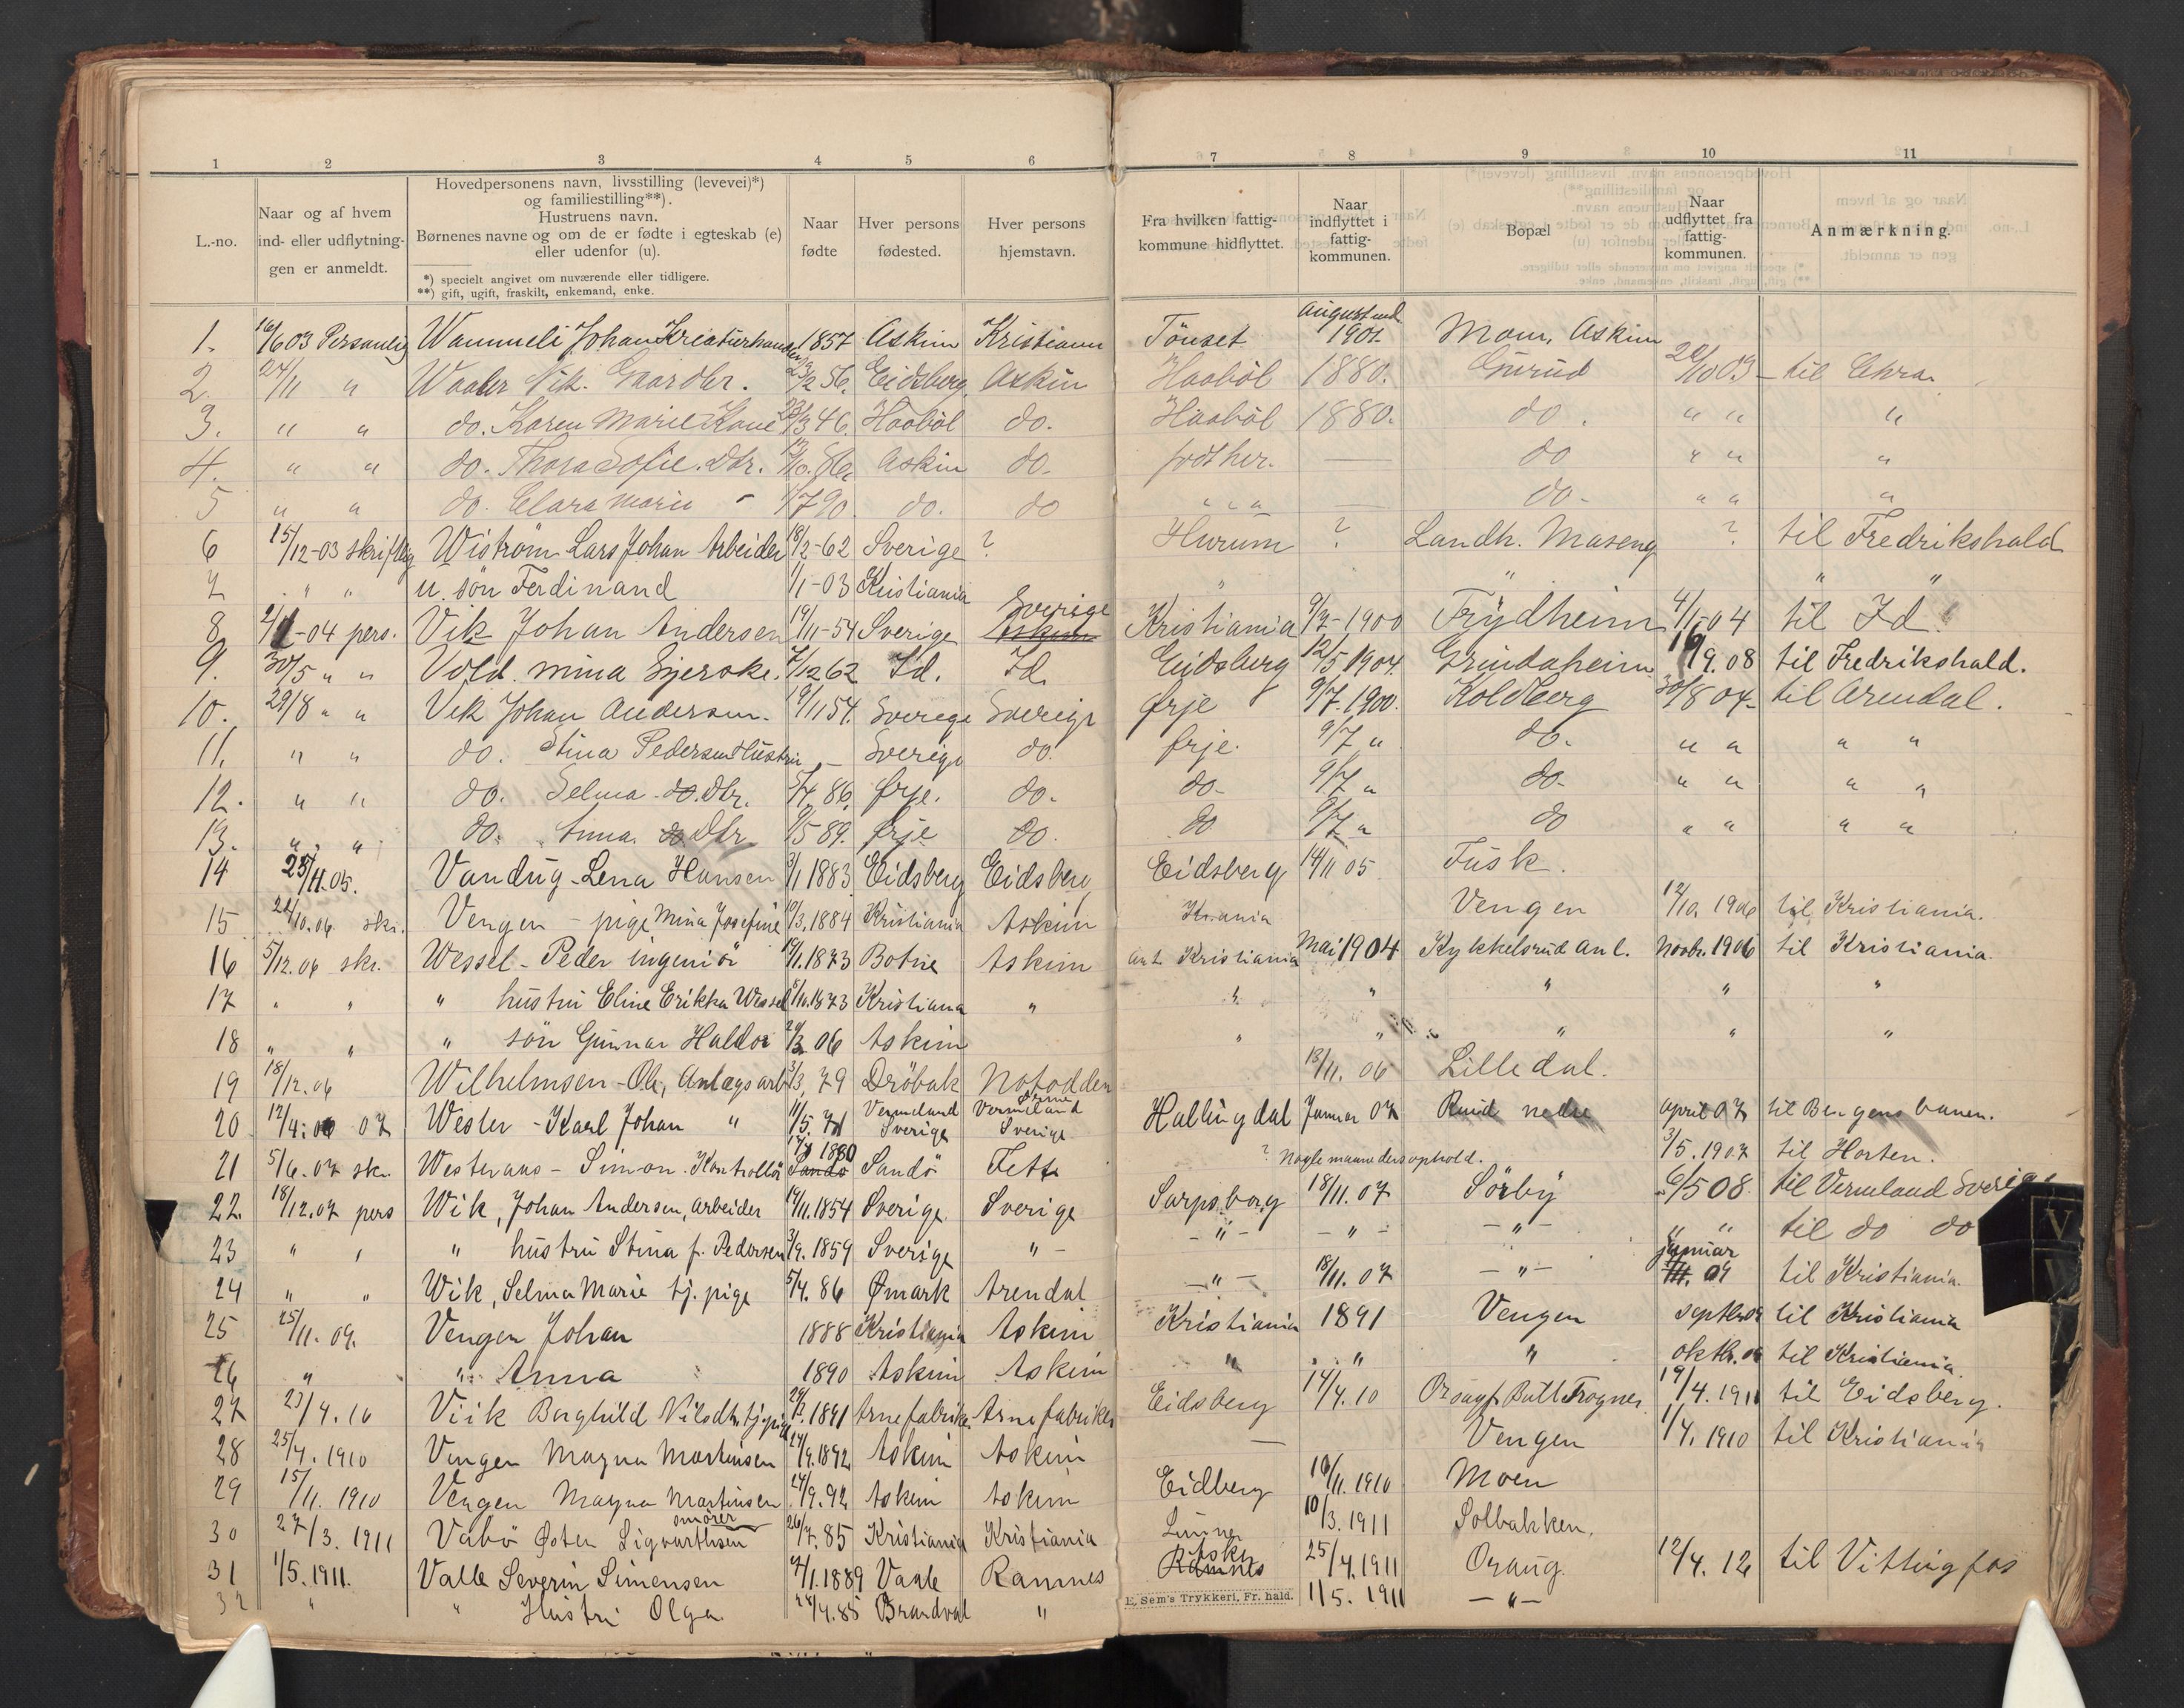 1 2 3 4 5 6 7 8 9 10 11
L.-no.
Naar og af hvem ind- eller udflytningen er anmeldt.
Hovedpersonens navn, livsstilling (levevei)*)
og familiestilling**).
Hustruens navn.
Børnenes navne og om de er fødte i egteskab (e)
eller udenfor (u).
*) specielt angivet om nuværende eller tidligere.
**) gift, ugift, fraskilt, enkemand, enke.
Naar fødte
Hver persons fødested.
Hver persons hjemstavn.
Fra hvilken fattigkommune hidflyttet.
Naar indflyttet i fattigkommunen.
Bopæl
Naar udflyttet fra fattigkommunen.
Anmærkning.
1. 16/6 03 Personlig Wammeli Johan Kreaturhandler 1857 Askim Kristiania Tönset august 1901 Mom, Askim
2. 24/11 " Waaler Nik. Gaardbr. 23/2 56. Eidsberg Askim Haaböl 1880. Gurud 20/10 03 - til Chra.
3. " " do. Karen Marie Kone 23/3 46. Haaböl do. Haaböl 1880. do. " " "
4. " " do. Thora Sofie. Dtr. 86 Askim do. født her. — do " " "
5 " " do. Clara Marie - 1/7 90. do. do " " " — do- " " "
6 15/12-03 skriftlig Wiström Lars Johan Arbeider 18/2-62 Sverige ? Hurum ? Landh. Maseng ? til Fredrikshald
7 " " u. sön Ferdinand 1/1-03 Kristiania " " " "
8 2/1-04 pers. Vik Johan Andersen 19/11-54 Sverige Sverige Askim Kristiania 9/7-1900 Frydheim 4/1-04 til Id.
9. 30/5 " " Vold. Mina Syerske. 7/12 62 Id. Id. Eidsberg 12/5 1904. Grindaheim 1/9.08 til Fredrikshald.
10. 29/8 " " Vik Johan Andersen. 19/11 54. Sverige Sverige Ørje 9/7. 1900. Koldberg 30/8 04- til Arendal.
11. " " do. Stina Pedersen Hustru — Sverige do. Ørje. 9/7 " do. " " " "
12. " " do. Selma do. Dtr. 5/4. 86. Ørje. do. do- 9/7 " do- " " " "
13. " " do. Anna do Dtr 9/5 89. Ørje do. do 9/7 " do " " " "
14 25/11.05. Vandug - Lena Hansen 3/1 1883 Eidsberg Eidsberg Eidsberg 14/11 05 Tusk.
15 22/10.06 skr. Vengen - pige Mina Josefine 10/3.1884 Kristiania Askim Kr.ania Vengen 12/10. 1906 til Kristiania.
16 5/12.06 skr. Wessel - Peder ingeniör 19/1.1873 Botne Askim ant. Kristiania Mai 1904 Kykkelsrud anl. Novbr. 1906 til Kristiania.
17 " " " hustru Eline Erikka Wessel 5/10.1873 Kristiana " " " " " "
18 " " " sön Gunnar Haldor 29/3 06 Askim " " " " "
19 18/12.06 Wilhelmsen - Ole, Anlægsarb 3/3, 79 Dröbak Notodden 13/11. 06 Lilledal.
20 12/4: 07 Wester - Karl Johan " 11/5. 71 Vermeland Sverige Vermeland Sverige Hallingdal Januar 07 Ruud nedre april 07 til Bergensbanen.
21 5/6.07 skr. Westeraas - Simon. Kontrollör 1880 Sandö Sandö Fett ? Nogle maanedersophold. 3/5.1907 til Horten.
22. 18/12.07 pers Wik, Johan Andersen, arbeider 19/11.1854 Sverige. Sverige Sarpsborg 18/11.07 Sörby 6/5 08. til Vermeland Sverige
23 " " " hustru Stina f. Pedersen 3/9. 1859 Sverige " - - " - - " - - " - " " til do do
24 " " Wik, Selma Marie tj. pige 5/4. 86 Ømark Arendal - " - 18/11. 07 - " - januar 09 til Kristiania.
25 25/11. 09. Vengen Johan 1888 Kristiania Askim Kristiania 1891 Vengen septbr.09 til Kristiania
26 " " Anna 1890 Askim Askim " " " oktbr.09 til Kristiania
27 23/4.10 Viik Borghild Nilsdtr. tj.pige 1891 Arnefabriker Arnefabriker Eidsberg 14/4.10 Oraug p. Butt. Frogner 19/4. 1911 til Eidsberg.
28 25/4. 1910 Vengen Magna Martinsen 24/9.1892 Askim Askim — Vengen 1/4. 1910 til Kristiania
29 15/11. 1910 Vengen Magna Martinsen 24/9.92 Askim Askim Eidberg 10/11. 1910 Moen
30 27/3. 1911 Vabö Østen Sigvarthsen smörer 26/7. 85 Kristiania Kristiania Lunner 10/3. 1911 Solbakken.
31 1/5. 1911. Valle Severin Simensen 4/1.1889 Vaale Ramnes Asker Ramnes 25/4. 1911 Oraug. 12/4. 12 til Vittingfos
32 " " Hustru Olga 28/4.85 Brandval " 1/5. 1911 - " -
E. Sem's Trykkeri, Fr. hald.